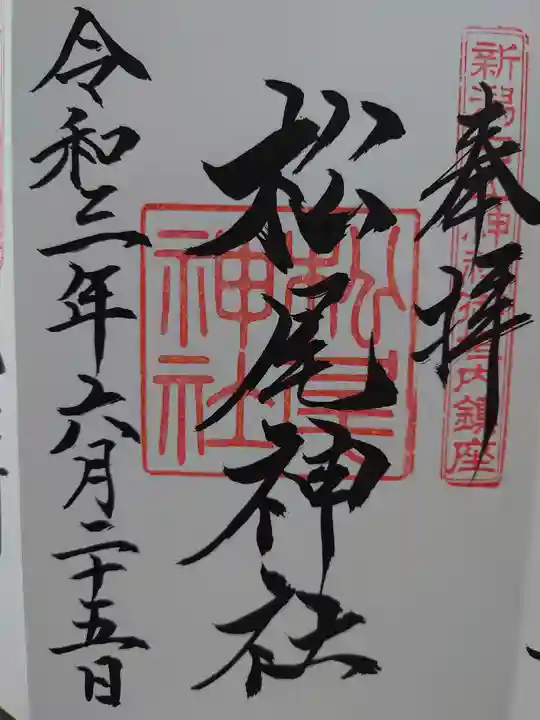 奉拝
新潟
神社境内鎮座
松尾神社
松尾神社
令和三年六月二十五日